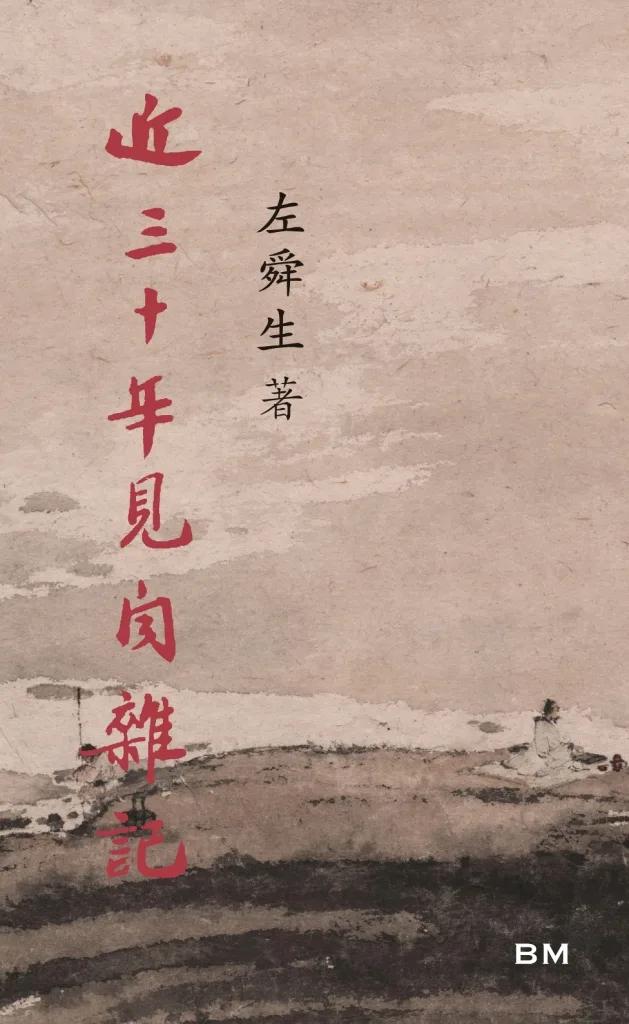 近三十年見聞雜記
左舜生著
BM